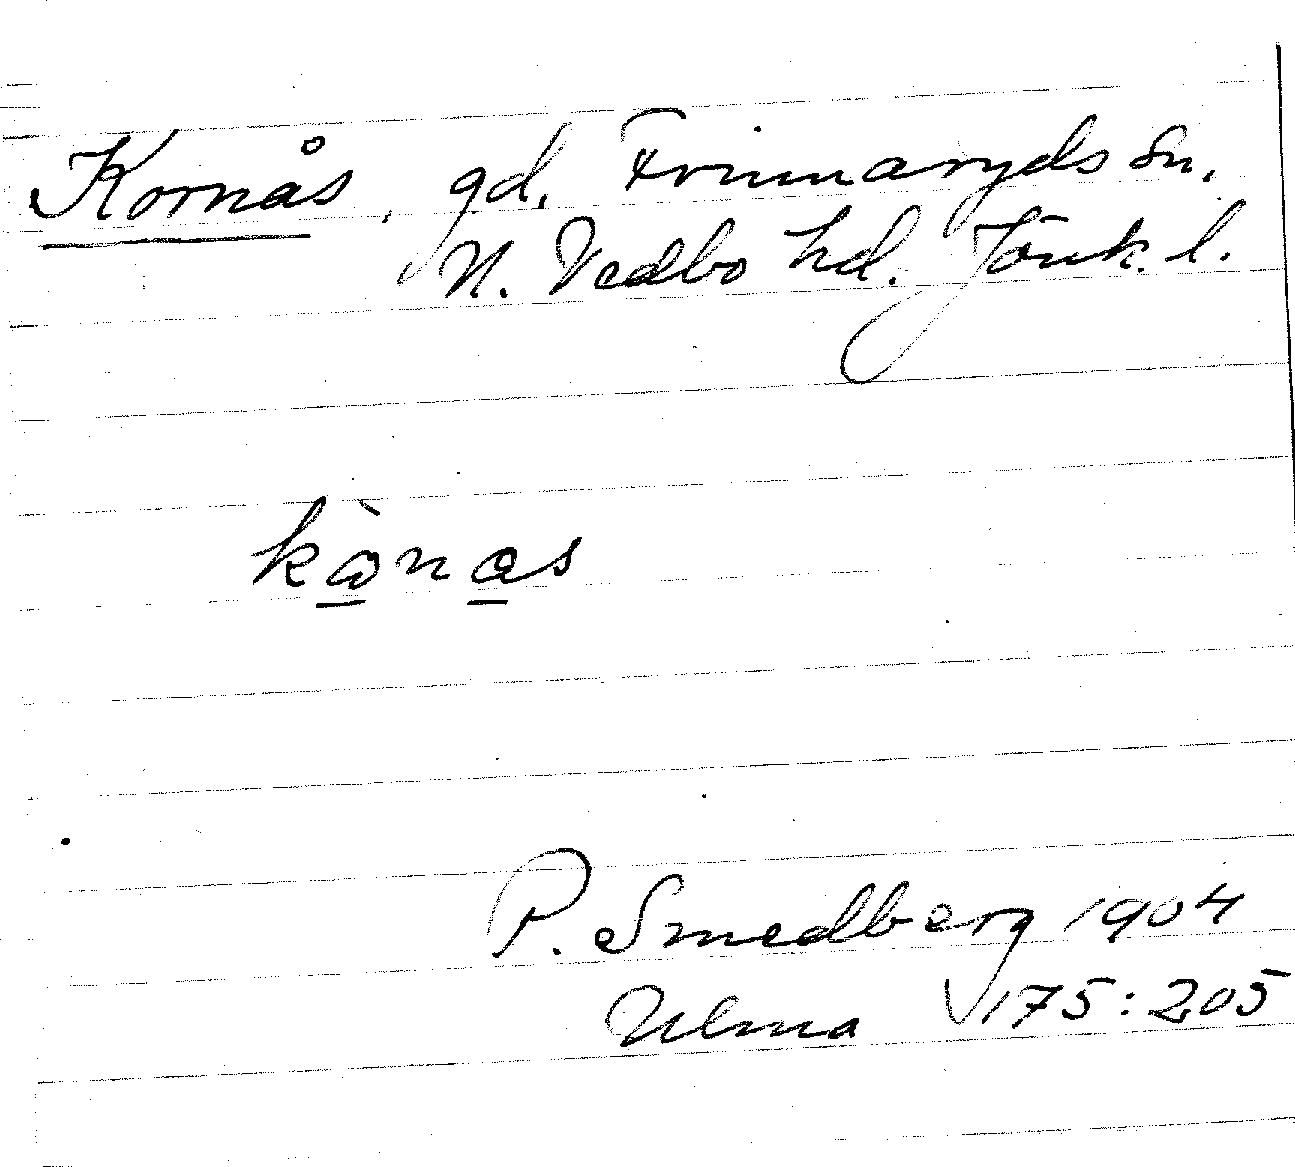 Kornås, gd, Frinnaryds sn,
N. Vedbo hd. Jönk. l.
kònas
P. Smedberg 1904
Ulma 175:205